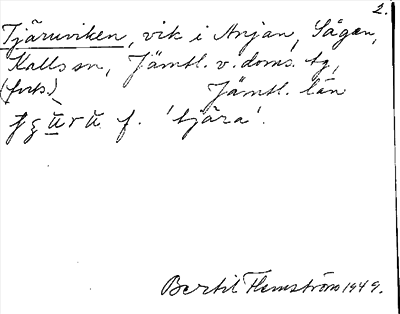 2.
Tjäruviken, vik i Anjan, Sågen,
Kalls sn, Jämtl. v. doms. tg,
(forts.) Jämtl. län
f. 'tjära'.
Bertil Flemström 1949.